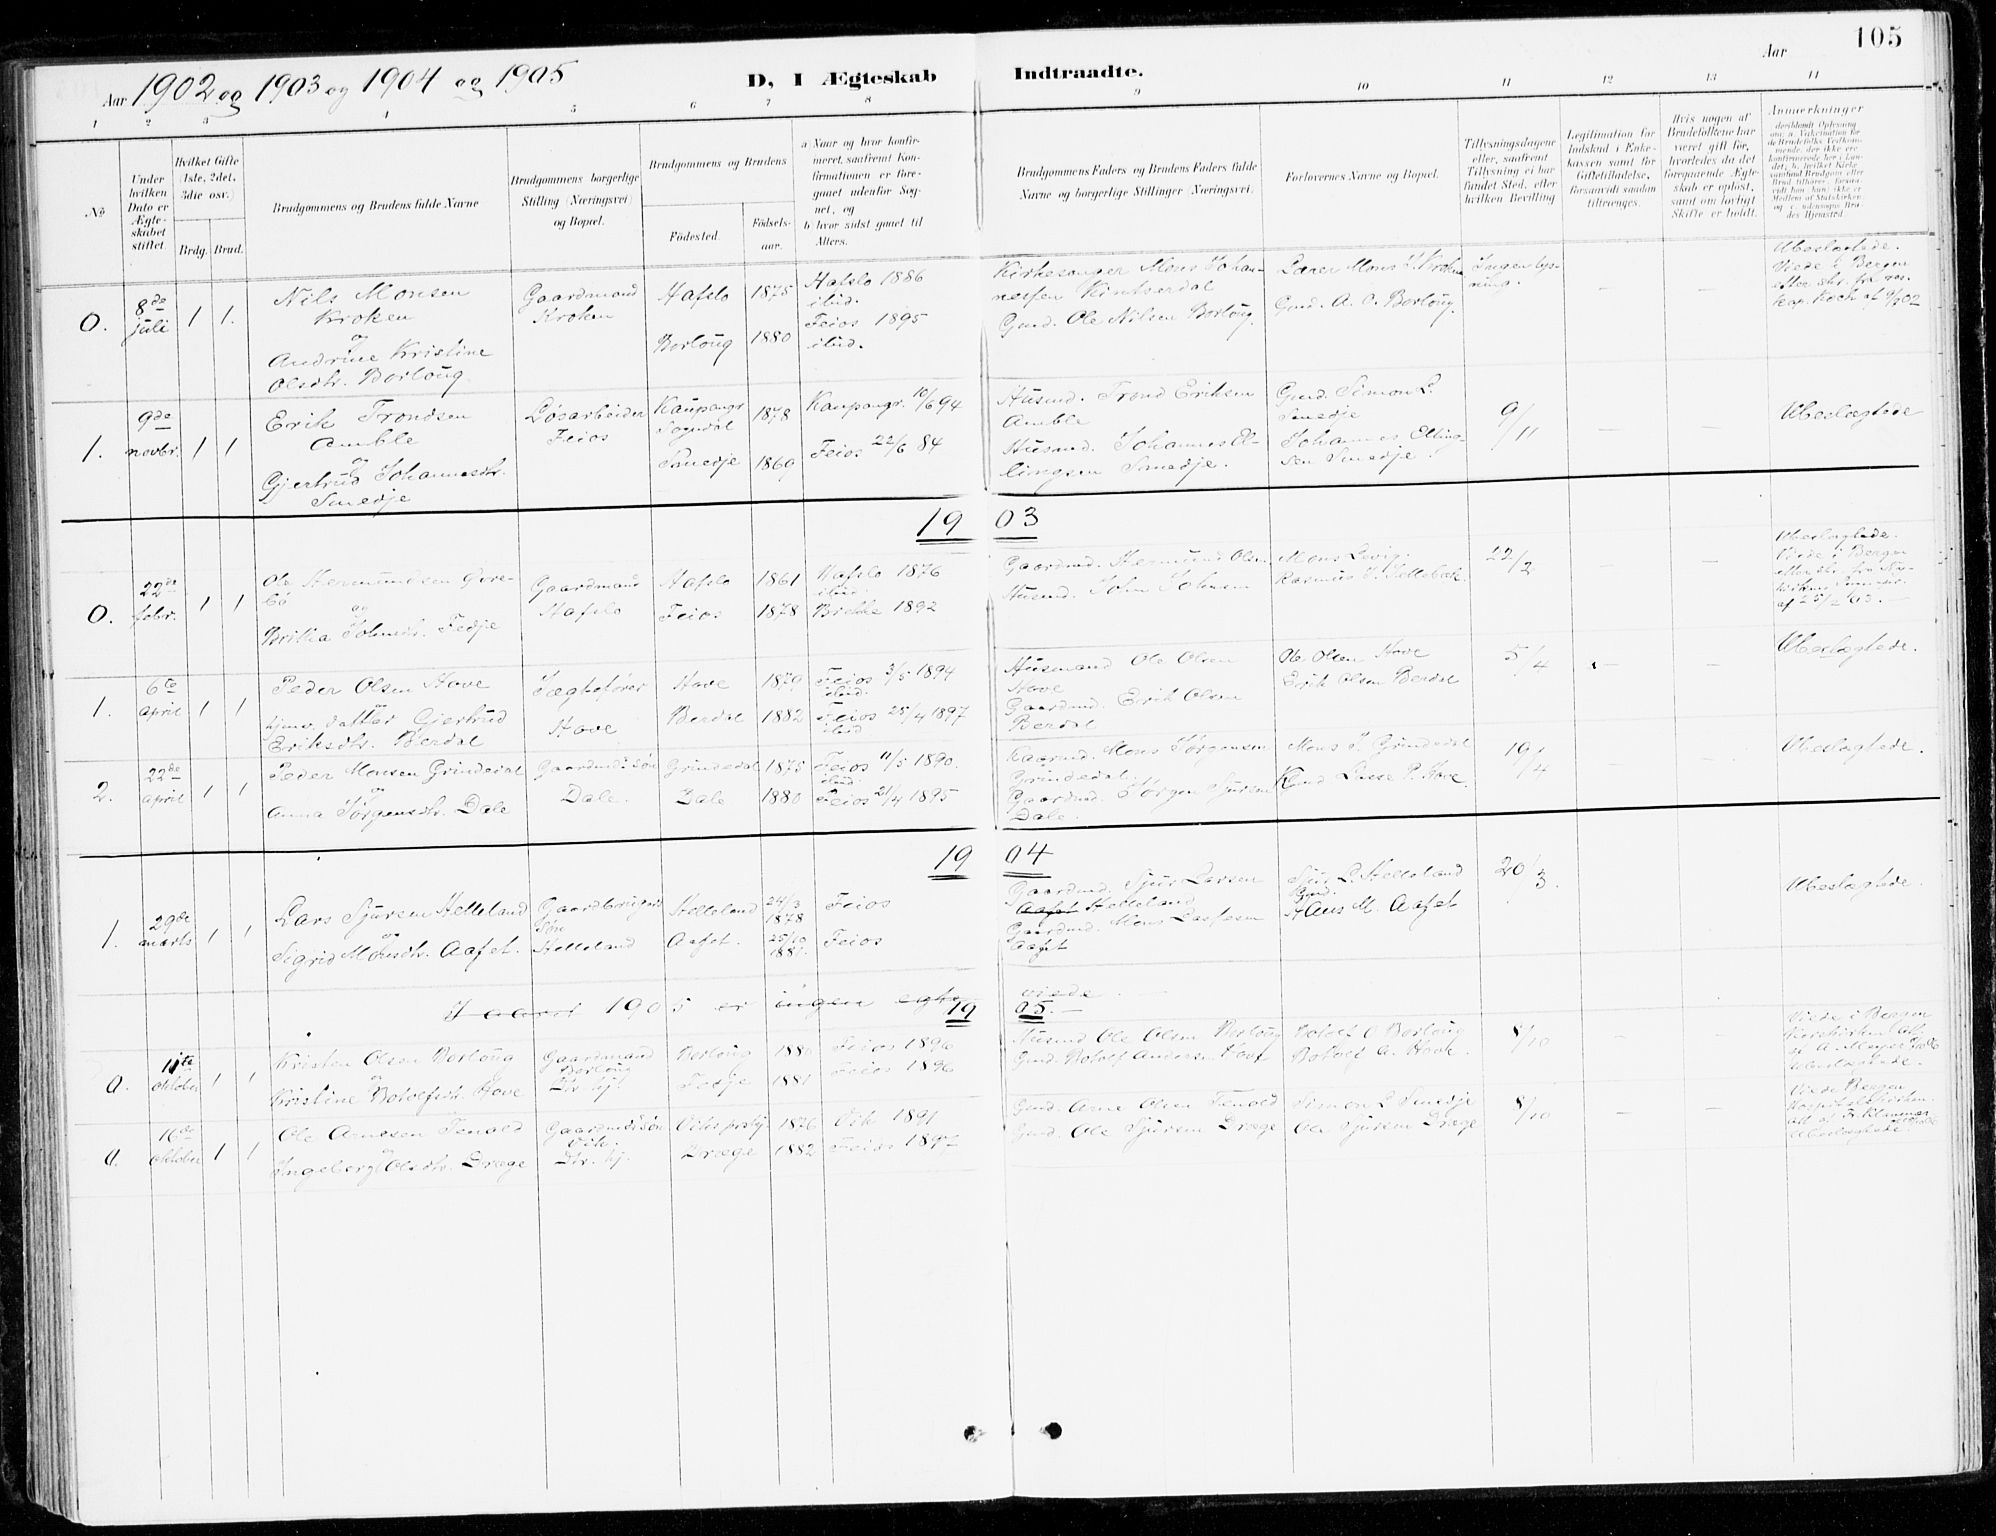 105
Aar 1902 og 1903 og 1904 og 1905
D, I Ægteskab Indtraadte.
Aar
1 2 3 4 5 6 7 8 9 10 11 12 13 14
No
Under hvilken Dato er Ægteskabet stiftet.
Hvilket Gifte (1ste, 2det, 3die osv.)
Brdg. Brud.
Brudgommens og Brudens fulde Navne
Brudgommens borgerlige Stilling (Næringsvei) og Bopæl.
Brudgommens og Brudens
Fødested. Fødselsaar.
a Naar og hvor konfirmeret, saafremt Konfirmationen er foregaaet udenfor Sognet, og
b hvor sidst gaaet til Alters.
Brudgommens Faders og Brudens Faders fulde Navne og borgerlige Stillinger (Næringsvei.
Forlovernes Navne og Bopæl.
Tillysningsdagene eller, saafremt Tillysning ei har fundet Sted, efter hvilken Bevilling
Legitimation for Indskud i Enkekassen samt for Giftetilladelse, forsaavidt saadan tiltrænges.
Hvis nogen af Brudefolkene har været gift før, hvorledes da det foregaaende Ægteskab er opløst, samt om lovligt Skifte er holdt.
Anmerkninger
0. 8de juli 1 1.
Nils Monsen
Kroken
og
Andrine Kristine
Olsdtr. Borloug
Gaardmand
Kroken
Hafslo 1875
Borloug 1880
Hafslo 1886
ibid.
Feios 1895
ibid.
Kirkesanger Mons Johannessen Kinserdal
Gmd. Ole Nilsen Borloug.
Lærer Mons J. Kroken
Gmd. A. O. Borloug.
Ingen lysning.
Ubeslægtede.
Viede i Bergen
1. 9de novbr. 1 1
Erik Trondsen
Amble
og
Gjertrud Johannesdtr.
Smedje
Løsarbeider
Feios
Kaupanger
Sogndal 1878
Smedje 1869
Kaupangr. 10/6 94
Feios 22/6 84
Husmd. Trond Eriksen
Amble
Husmd. Johannes Ellingsen Smedje.
Gmd. Simon L.
Smedje
Johannes Ellingsen Smedje.
9/11
Ubeslægtede
1903
0. 22de febr. 1 1
Ole Hermundsen
og
Brita Johnsdtr. Fedje
Gaardmand
Hafslo
Hafslo 1861
Feios 1878
Hafslo 1876
ibid.
1892
Gaardmd. Hermund Olsen
Husmd. John Johnsen
22/2
Ubeslægtede.
Viede i Bergen
1. 6te april 1 1
Peder Olsen Hove
og
hjemv. datter Gjertrud
Eriksdtr. Berdal
Hove
Hove 1879
Berdal 1882
Feios 3/5 1894
ibid.
Feios 25/4 1897
ibid.
Husmand Ole Olsen
Hove
Gaardmd. Erik Olsen
Berdal
Ole Olsen Hove
Erik Olsen Berdal
5/4
Ubeslægtede.
2. 22de april 1 1
Peder Monsen Grindedal
og
Anna Jørgensdtr. Dale
Gaardmdssøn
Dale.
Grindedal 1875
Dale 1880
Feios 11/5 1890.
ibid.
Feios 21/4 1895
Gaardmd. Mons Jørgensen
Grindedal.
Gaardmd. Jørgen Sjursen
Dale.
Mons J. Grindedal
Lasse P. Hove
19/4
Ubeslægtede.
1904
1. 29de marts 1 1
Lars Sjursen Helleland
og
Sigrid Monsdtr. Aafet.
Gaardbrugers
Søn
Helleland
Helleland 24/3 1878
Aafet. 25/10 1881.
Feios
Feios
Gaardmd. Sjur Larsen
Aafet Helleland
Gaardmd. Mons Lassesen
Aafet
Sjur L. Helleland
Gmd.
Hans M. Aafet
20/3.
Ubeslægtede.
I aaret 1905 er ingen egteviede.
1905.
0. 11te oktober 1 1
Kristen Olsen Borloug
og
Kristine Botolfsdt. Hove
Gaardmand
Borloug
Dtr. hj.
Borloug 1880
Fedje 1881
Feios 1896
Feios 1896
Husmd Ole Olsen Borloug
Gmd. Botolf Andersen Hove
Botolf O Borloug
Botolf A. Hove.
8/10
Viede i Bergen
Ubeslægtede.
0. 16de oktober 1 1
Ole Arnesen Tenold
og
Ingeborg Olsdtr. Dræge
Gaardmdssøn
Vik.
Dtr. hj.
Viks prstgj. 1876
Dræge 1882
Vik 1891
Feios 1897
Gmd. Arne Olsen Tenold
Gmd. Ole Sjursen Dræge
Simon L. Smedje
Ole Sjursen Dræge
8/10
Viede Bergen
Ubeslægtede